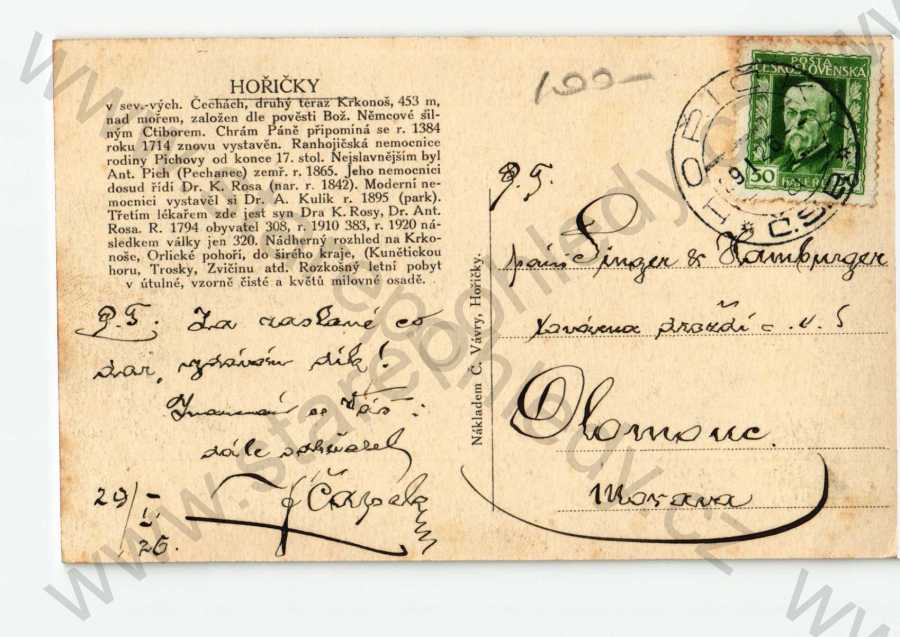 HOŘIČKY
v sev.-vých. Čechách, druhý teraz Krkonoš, 453 m,
nad mořem, založen dle pověsti Bož. Němcové sil-
ným Ctiborem. Chrám Páně připomíná se r. 1384
roku 1714 znovu vystavěn. Ranhojičská nemocnice
rodiny Pichovy od konce 17. stol. Nejslavnějším byl
Ant. Pich (Pechanec) zemř. r. 1865. Jeho nemocnici
dosud řídí Dr. K. Rosa (nar. r. 1842). Moderní ne-
mocnici vystavěl si Dr. A. Kulík r. 1895 (park).
Třetím lékařem zde jest syn Dra K. Rosy, Dr. Ant.
Rosa. R. 1794 obyvatel 308, r. 1910 383, r. 1920 ná-
sledkem války jen 320. Nádherný rozhled na Krko-
noše, Orlické pohoří, do širého kraje, (Kunětickou
horu, Trosky, Zvičinu atd. Rozkošný letní pobyt
v útulné, vzorně čisté a květů milovné osadě.
P. T. Za zaslané co
dar, vzdávám dík!
se Vás
dále
Čapek
29/I.
26.
Nákladem Č. Vávry, Hořičky.
100-
POŠTA
ČESKOSLOVENSKA
50
HOŘIČ
Č.S.R.
P. T.
páni Singer & Hamburger
továrna droždí
Olomouc.
Morava
www.starepohledy.cz